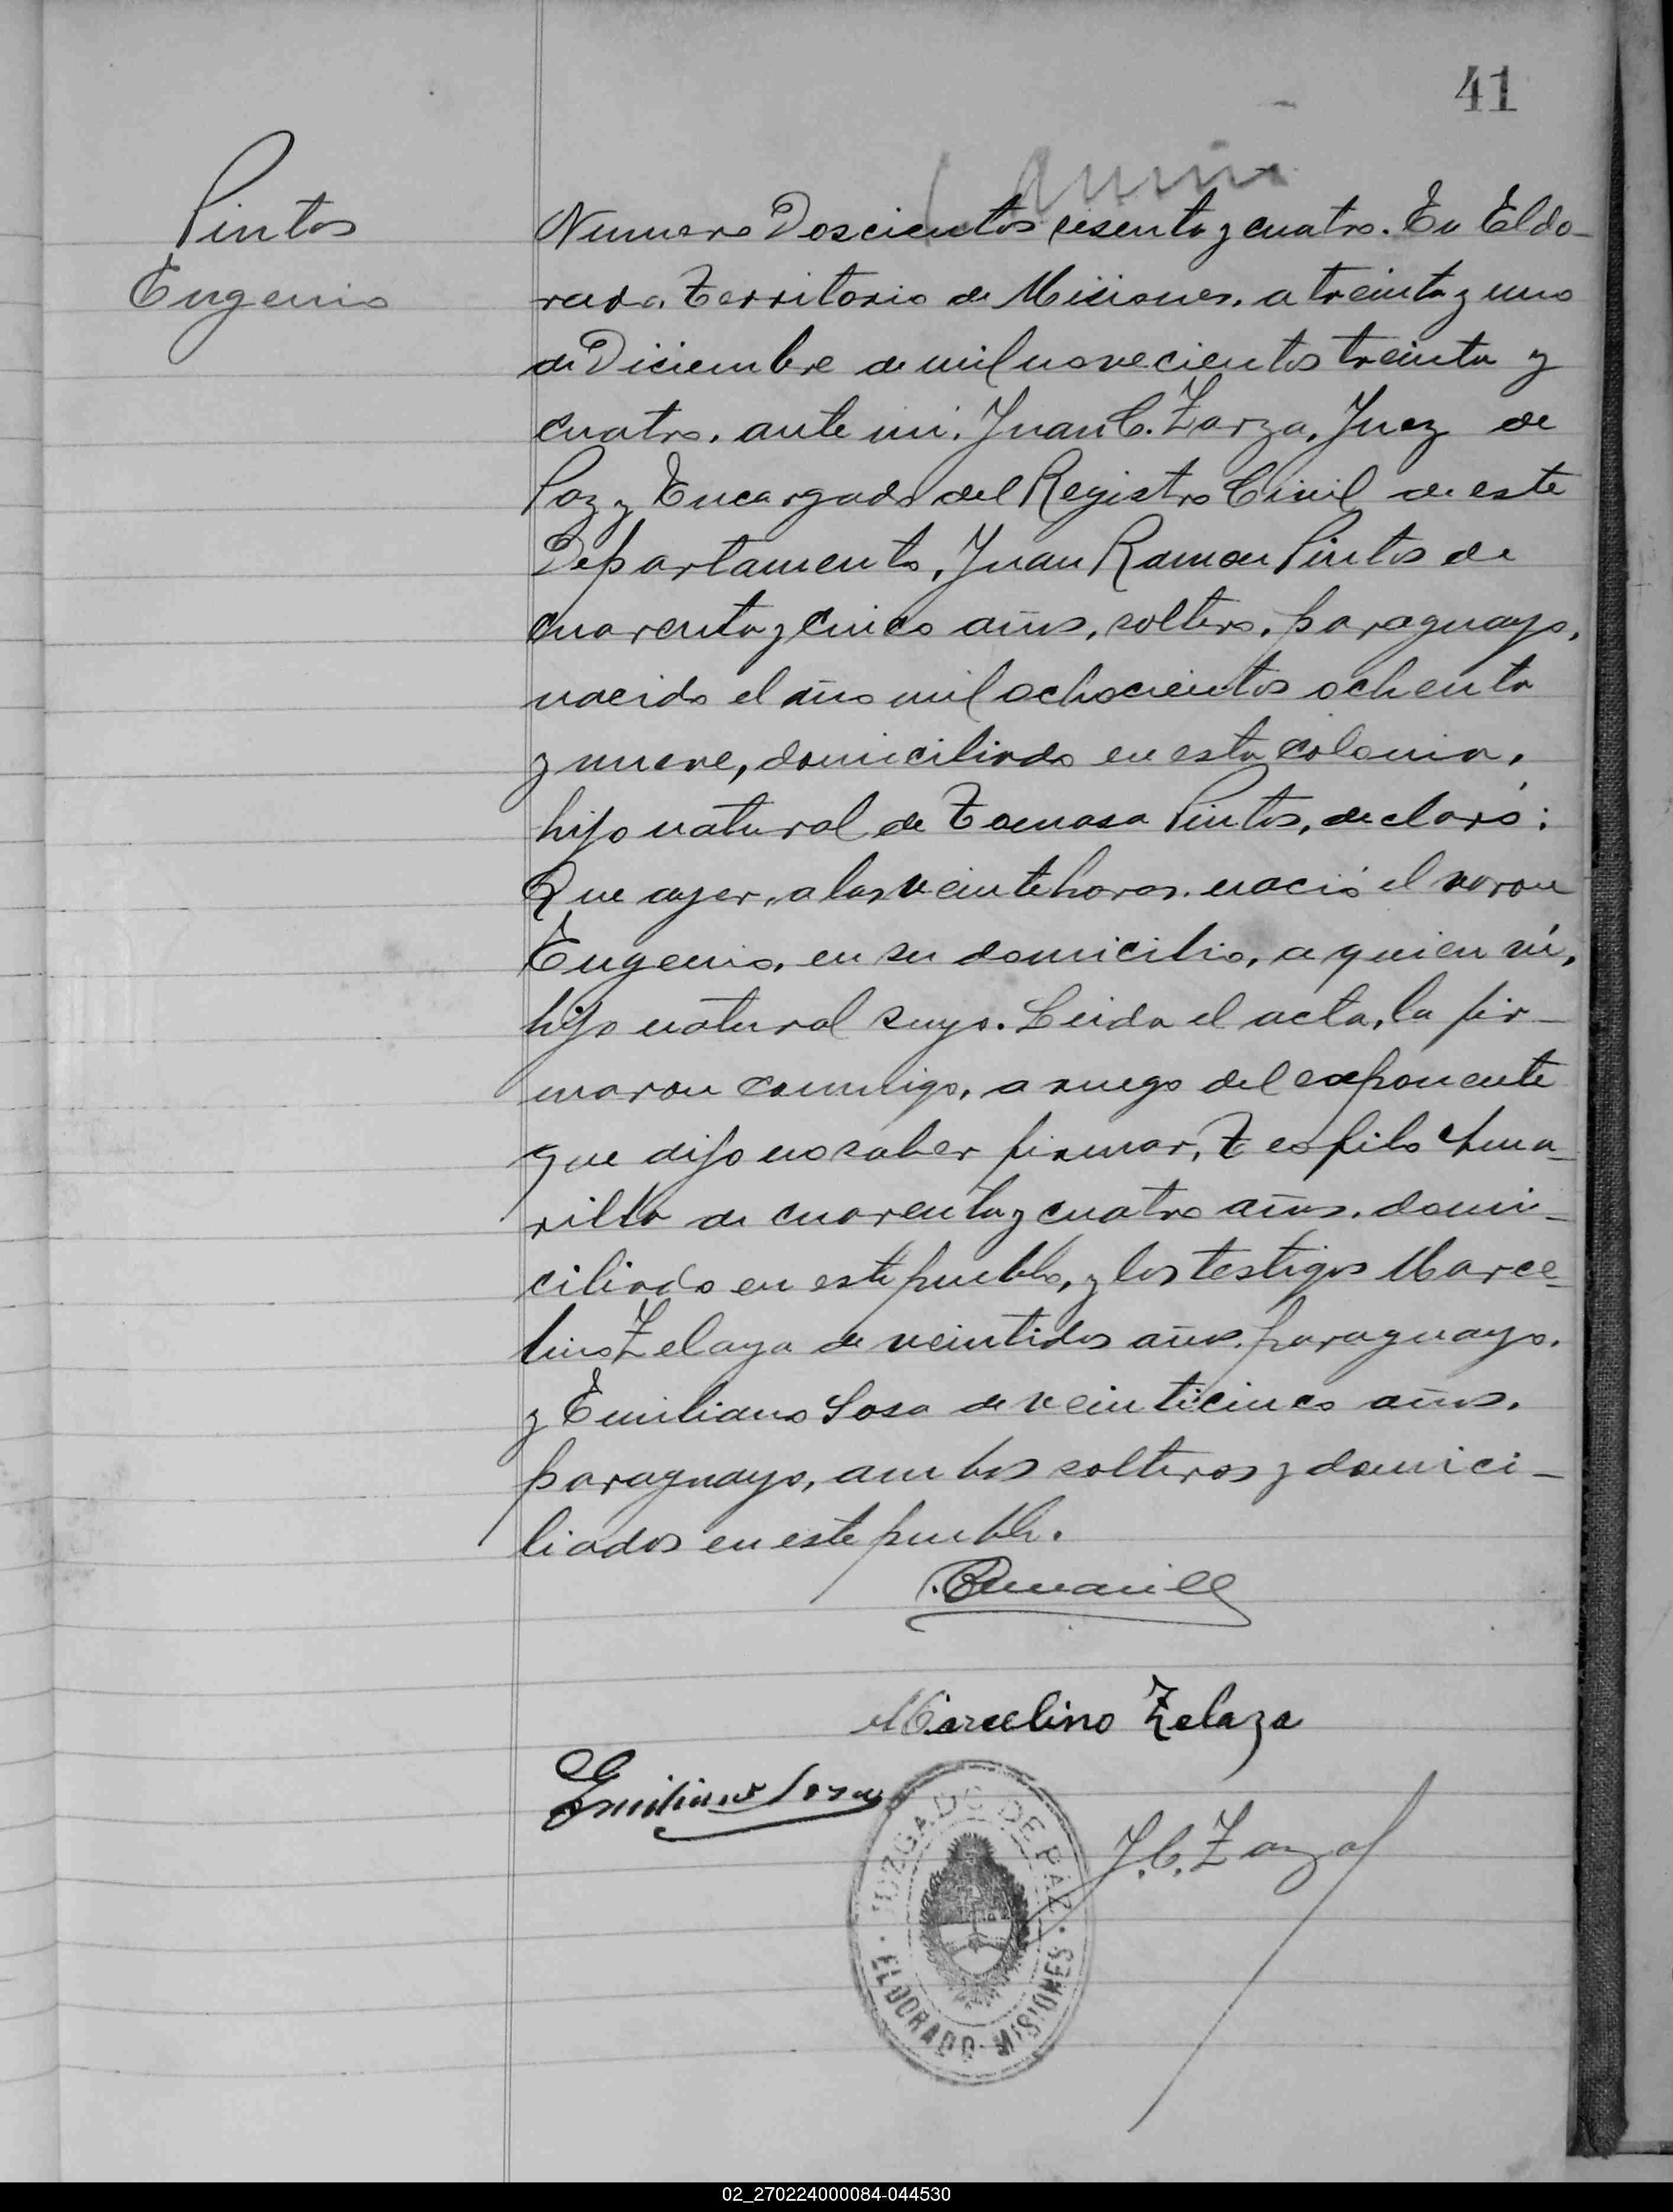 41
Pintos
Eugenio
Numero Doscientos sesenta y cuatro. En Eldo-
rado, Territorio de Misiones, a treinta y uno
de Diciembre de mil novecientos treinta y
cuatro, ante mi, Juan C. Zarza, Juez de
Paz y Encargado del Registro Civil de este
Departamento, Juan Ramon Pintos de
cuarenta y cinco años, soltero, paraguayo,
nacido el año mil ochocientos ochenta
y nueve, domiciliado en esta colonia,
hijo natural de Tomasa Pintos, declaró:
Que ayer, a las veinte horas, nació el varon
Eugenio, en su domicilio, a quien ví,
hijo natural suyo. Leida el acta, la fir-
maron conmigo, a ruego del exponente
que dijo no saber firmar, Teofilo Ama-
rilla de cuarenta y cuatro años, domi-
ciliado en este pueblo, y los testigos Marce-
lino Zelaya de veintidos años, paraguayo,
y Emiliano Sosa de veinticinco años,
paraguayo, ambos solteros y domici-
liados en este pueblo.
Marcelino Zelaza
Emiliano Sosa
J. C. Zarza
JUZGADO DE PAZ
ELDORADO - MISIONES
02_270224000084-044530